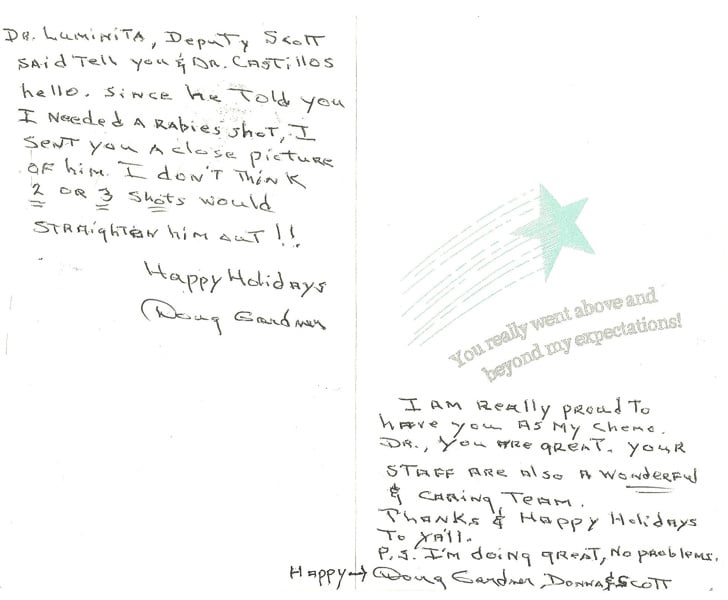 DR. LUMINITA, DEPUTY SCOTT
SAID TELL YOU & DR. CASTILLOS
hello. SINCE he TOLD YOU
I NEEDED A RABIES SHOT, I
SENT YOU A close PICTURE
OF him. I DON'T THINK
2 OR 3 SHOTS WOULD
STRAIGHTEN him OUT!!
HAPPY HOLIDAYS
DOUG GARDNER
You really went above and
beyond my expectations!
I AM REALLY PROUD TO
HAVE YOU AS MY CHEMO.
DR., YOU ARE GREAT. YOUR
STAFF ARE ALSO A WONDERFUL
& CARING TEAM.
THANKS & HAPPY HOLIDAYS
TO YA'll.
P.S. I'M DOING GREAT, NO PROBLEMS.
HAPPY → DOUG GARDNER, DONNA & SCOTT